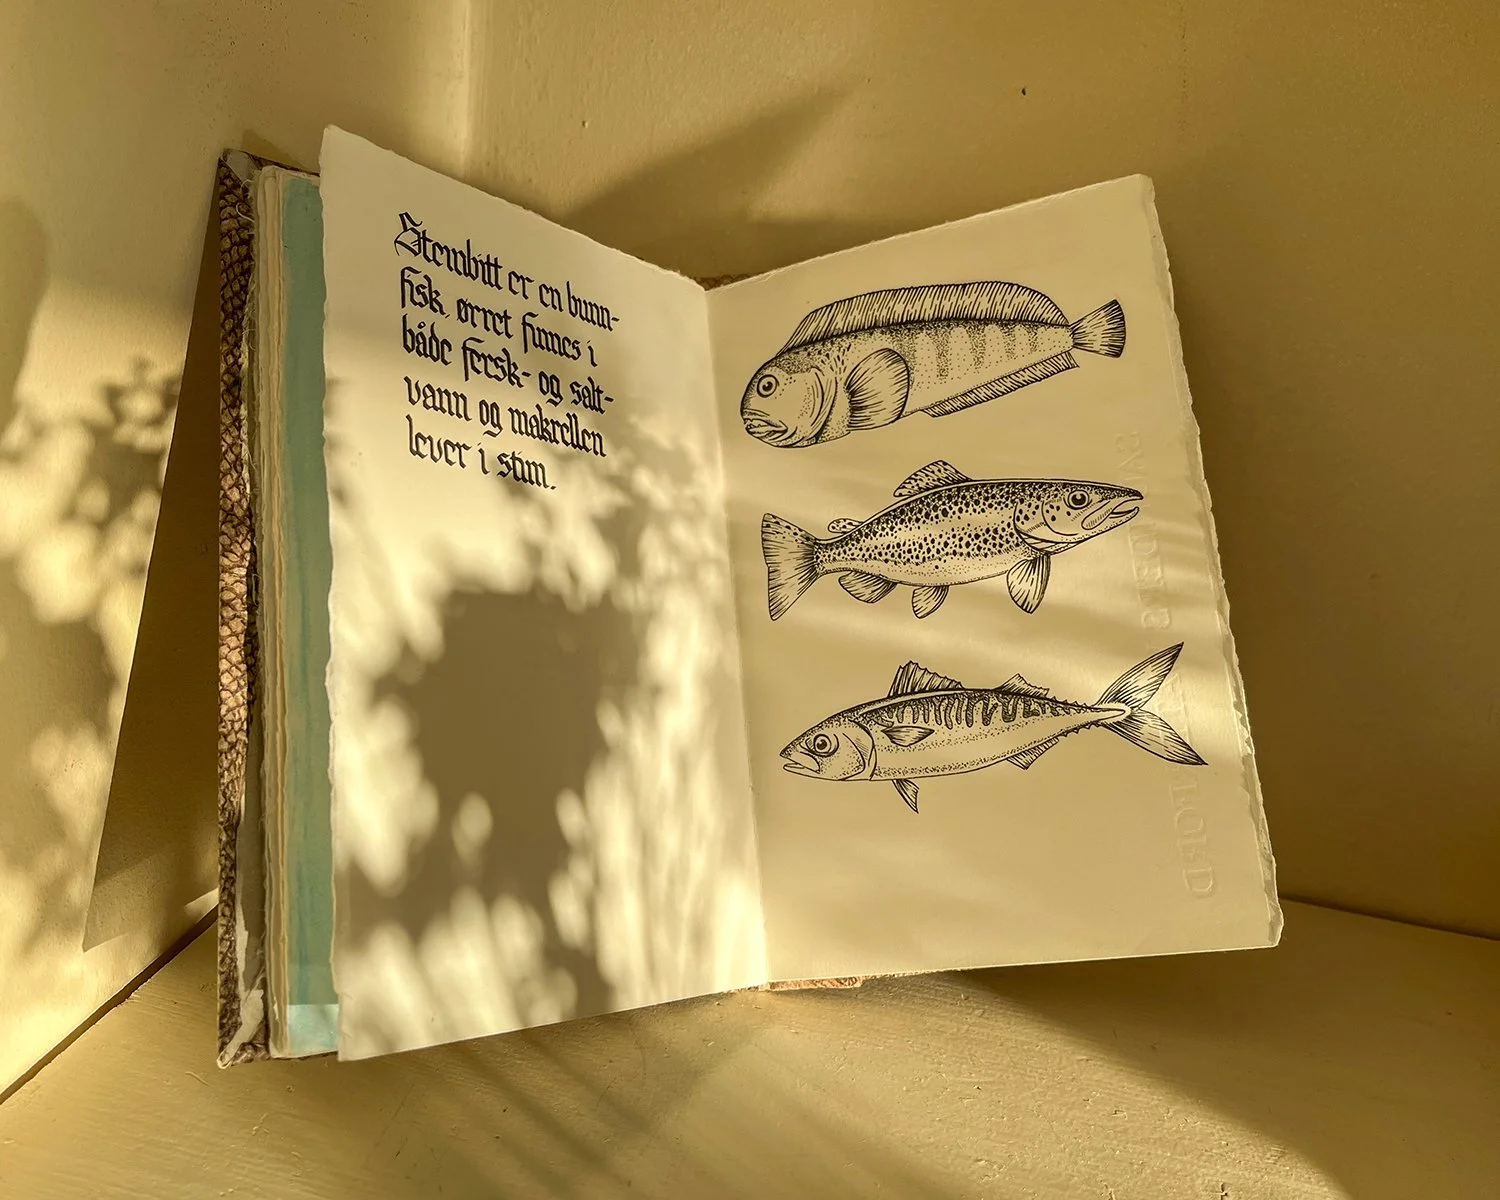 Steinbitt er en bunn-
fisk, ørret finnes i
både fersk- og salt-
vann og makrellen
lever i stim.